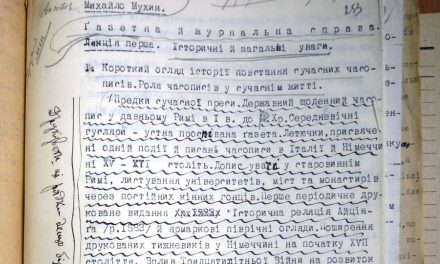 Михайло Мухин.
253
Ґазетна й журнальна справа.
Лекція перша. Історичні й загальні уваги.
I. Короткий огляд історії повстання сучасних часо-
писів. Роля часописів у сучаснім житті.
Предки сучасної преси. Державний щоденний часо-
пис у давньому Римі в I в. до Хр. Середневічні
гуслярі - устна ґазета. Летючки, присвяче-
ні одній події й писані часописи в Італії й Німеччи-
ні XV - XVI століть. Допис у старовиннім
Римі, листування університетів, міст та монастирів
через постійних кінних гонців. Перше періодичне дру-
коване видання "Історична реляція Айцін-
ґа /р.1583/ й ярмаркові піврічні огляди. Поширення
друкованих тижневиків у Німеччині на початку XVII
століття. Вплив Тридцятилітньої Війни на розвиток